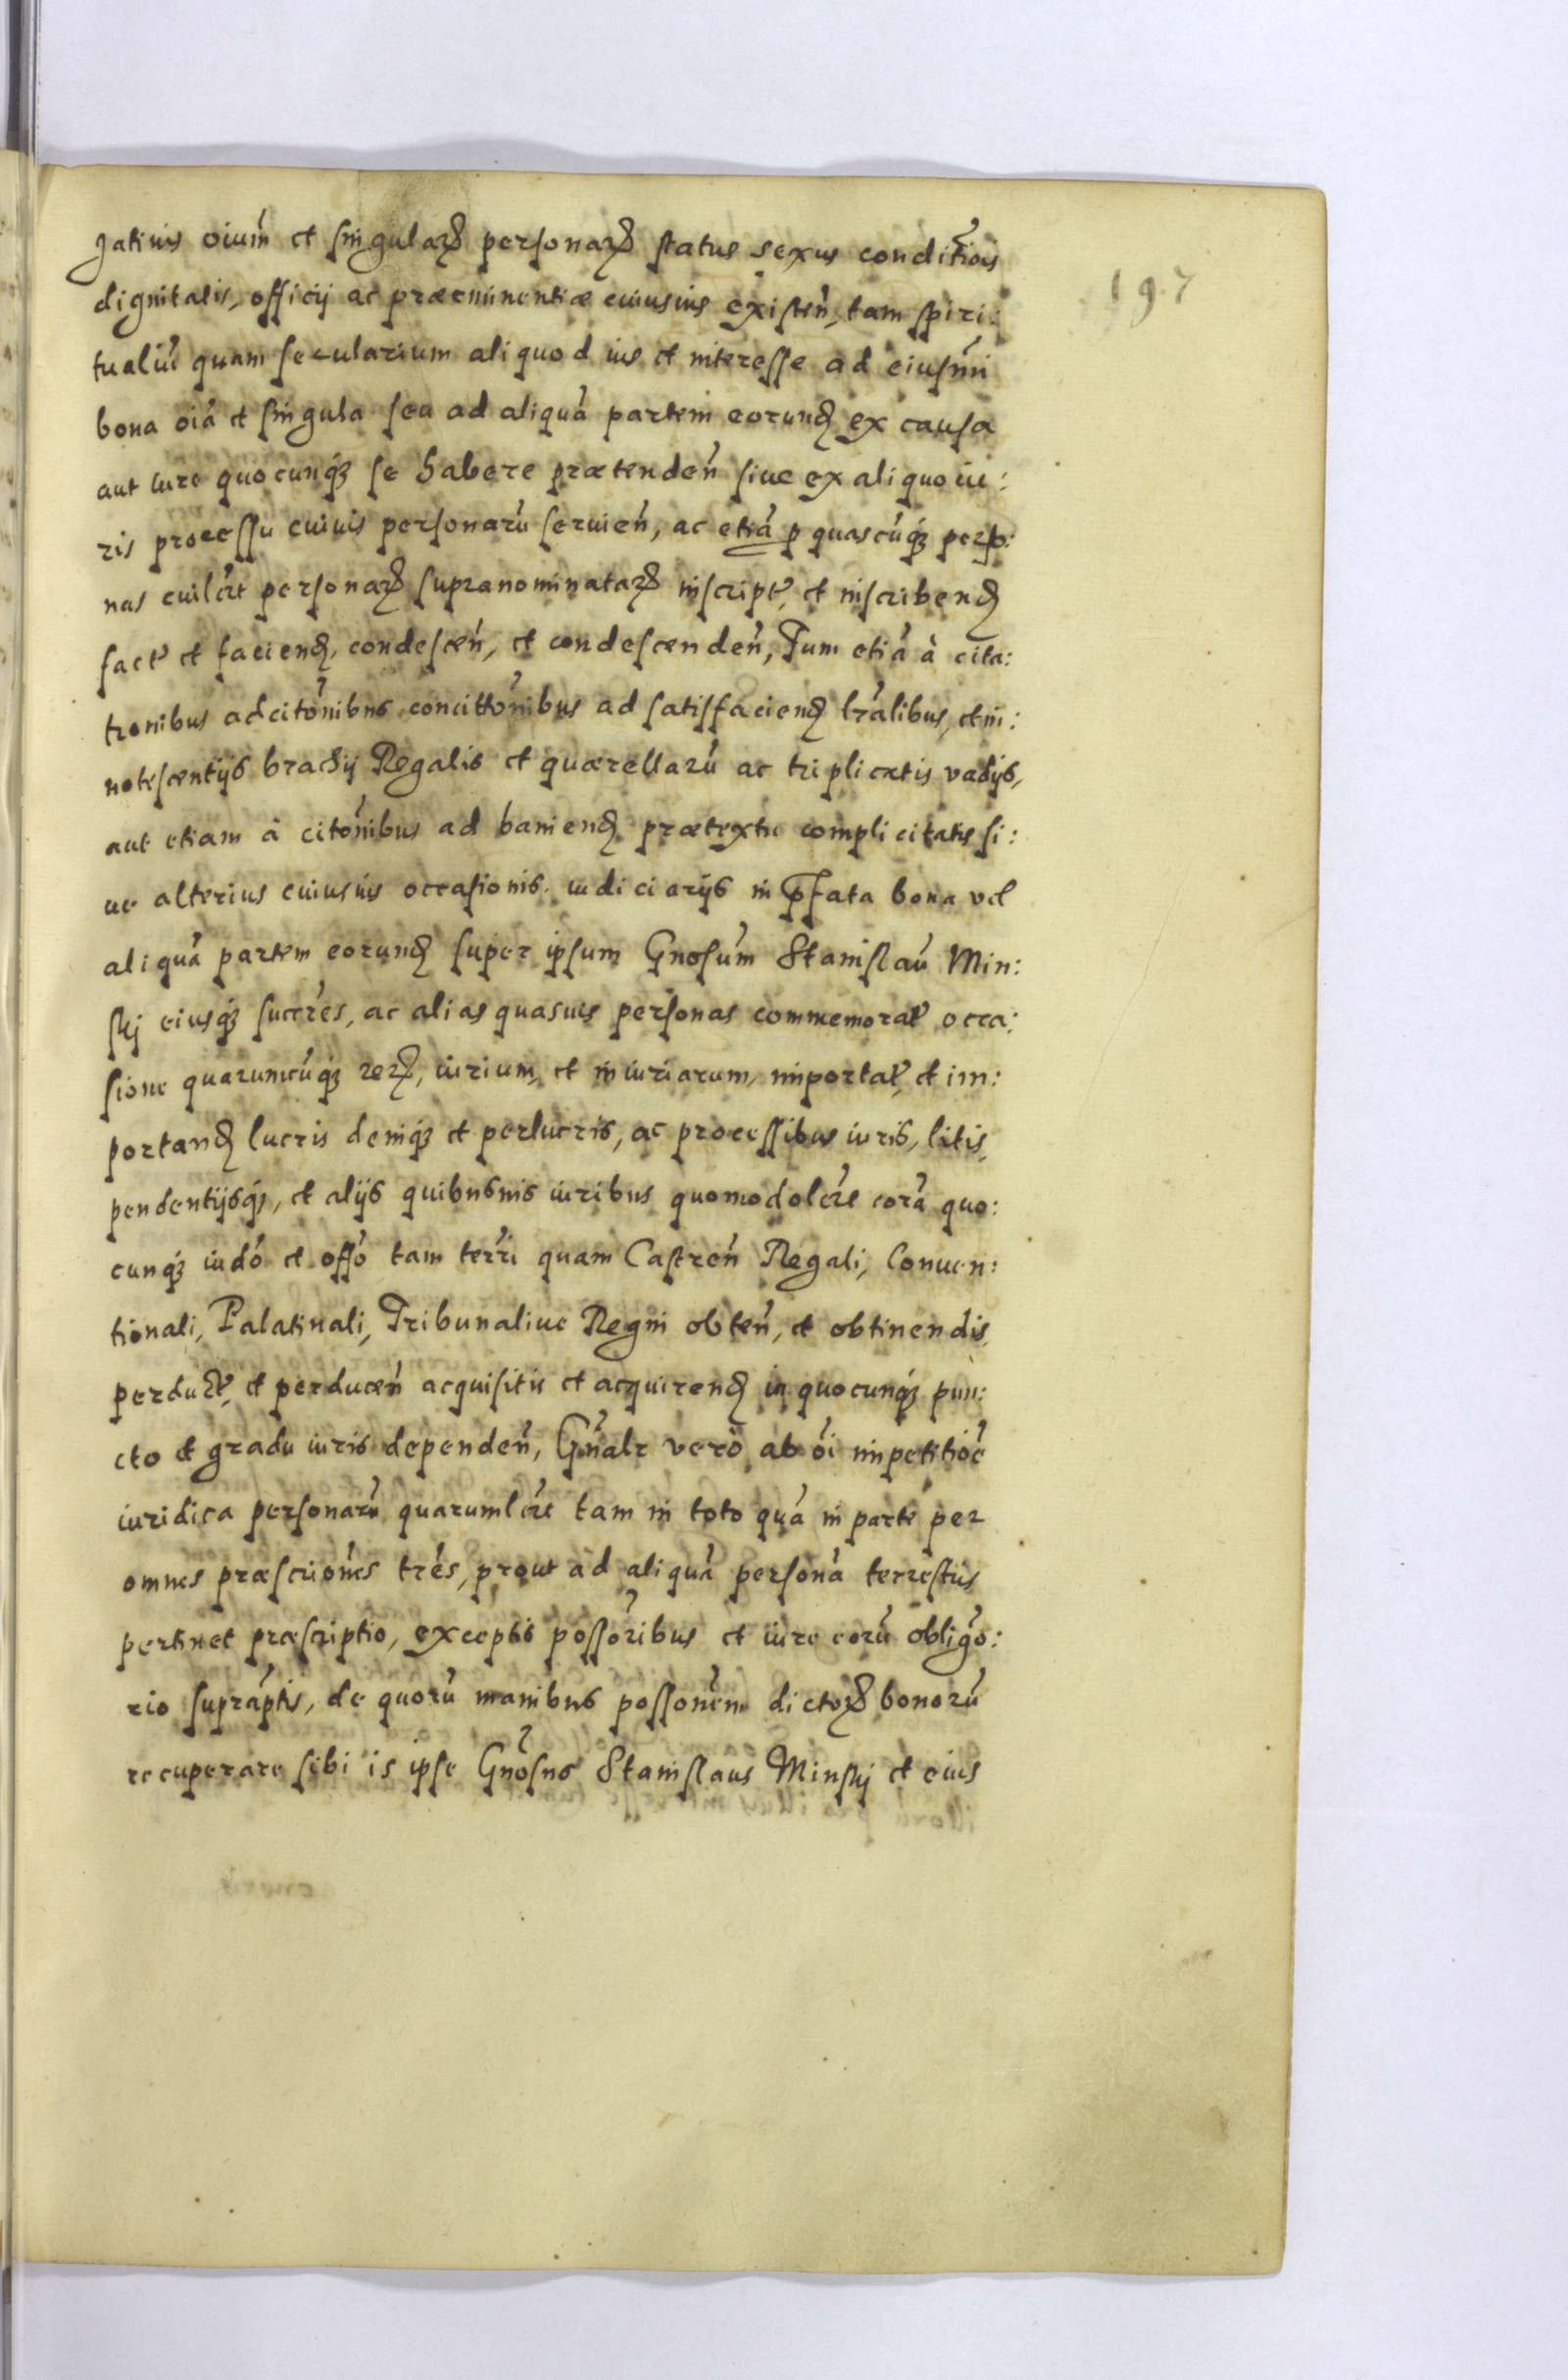 197
gatinis oium̃ et singularꝝ personarꝝ status sexus conditiois
dignitatis, officij ac præeminentiæ cuiusuis existeñ, tam spiri:
tualiũ quam secularium aliquod ius et interesse ad eiusm̃i
bona oiã et singula seu ad aliquã partem eorunꝺ ex causa
aut iure quocunqꝫ se habere prætendeñ siue ex aliquo iu:
ris processu cuiuis personarũ seruieñ, ac etiã ꝑ quascũqꝫ perso:
nas cuilr̃t personarꝝ supranominatarꝝ inscript̃, et inscribenꝺ
fact̃ et facienꝺ, condesceñ, et condescendeñ, Tum etiã à cita:
tionibus adcitõnibus concittõnibus ad satisfacienꝺ lr̃alibus, et in:
notescentijs brachij Regalis et quærellarũ ac triplicatis vadijs,
aut etiam à citõnibus ad banienꝺ prætextu complicitatis si:
ue alterius cuiusuis occasionis. iudiciarijs in p̃fata bona vel
aliquã partem eorunꝺ super ipsum Gnosũm Stanislaũ Min:
skj eiusqꝫ succr̃es, ac alias quasuis personas commemorat̃ occa:
sione quarumcũqꝫ rerꝝ, iurium, et iniuriarum, importat̃, et im:
portanꝺ lucris deniqꝫ et perlucris, ac processibus iuris, litis,
pendentijsqꝫ, et alijs quibusuis iuribus quomodolr̃t corã quo:
cunqꝫ iudõ et offõ tam terr̃i quam Castreñ Regali, Conuen:
tionali, Palatinali, Tribunaliue Regni obteñ, et obtinendis,
perduct̃, et perduceñ acquisitis et acquirenꝺ in quocunqꝫ pun:
cto et gradu iuris dependeñ, Gñalr verò ab õi impetitiõe
iuridica personarũ quarumlr̃t tam in toto quã in parte per
omnes præscriõnes trẽs, prout ad aliquã personã terrestris
pertinet præscriptio, exceptis possõribus et iure eorũ obligõ:
rio suprãptis, de quorũ manibus possonẽm dictorꝝ bonorũ
recuperare sibi is ipse Gnõsus Stanislaus Minskj et eius